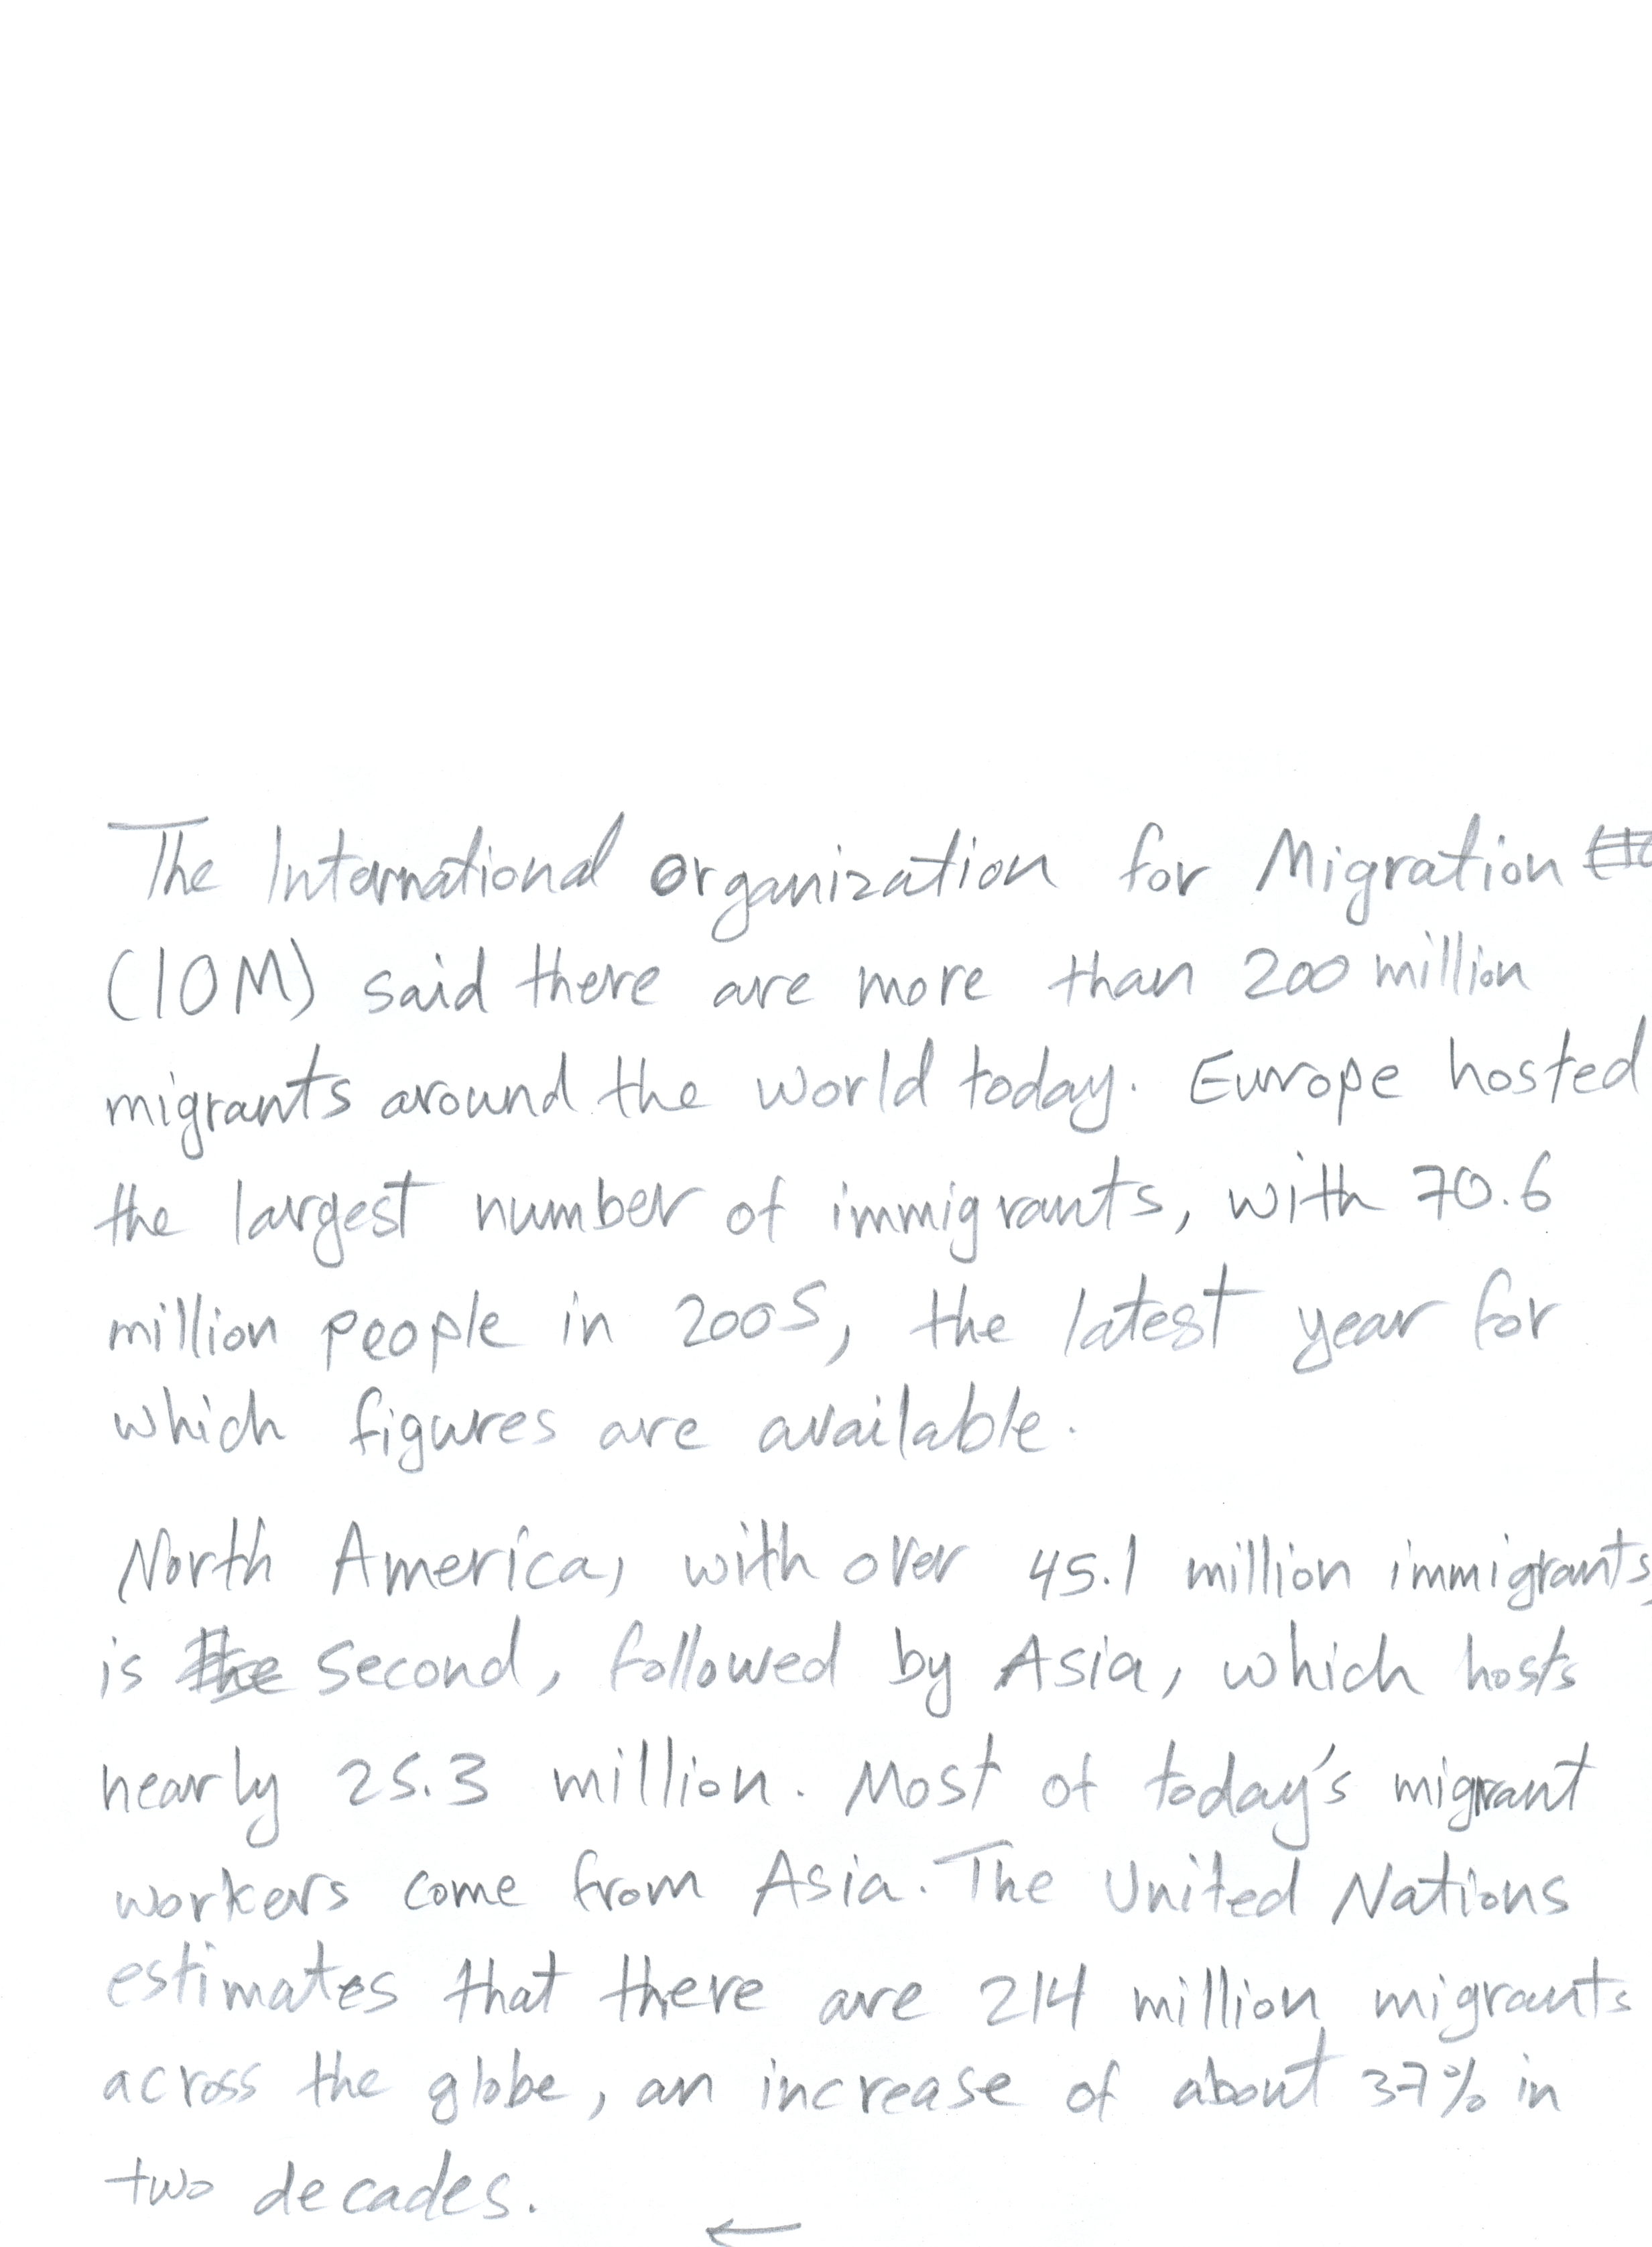 The International Organization for Migration
(IOM) said there are more than 200 million
migrants around the world today. Europe hosted
the largest number of immigrants, with 70.6
million people in 2005, the latest year for
which figures are available.
North America, with over 45.1 million immigrants,
is the second, followed by Asia, which hosts
nearly 25.3 million. Most of today's migrant
workers come from Asia. The United Nations
estimates that there are 214 million migrants
across the globe, an increase of about 37% in
two decades.